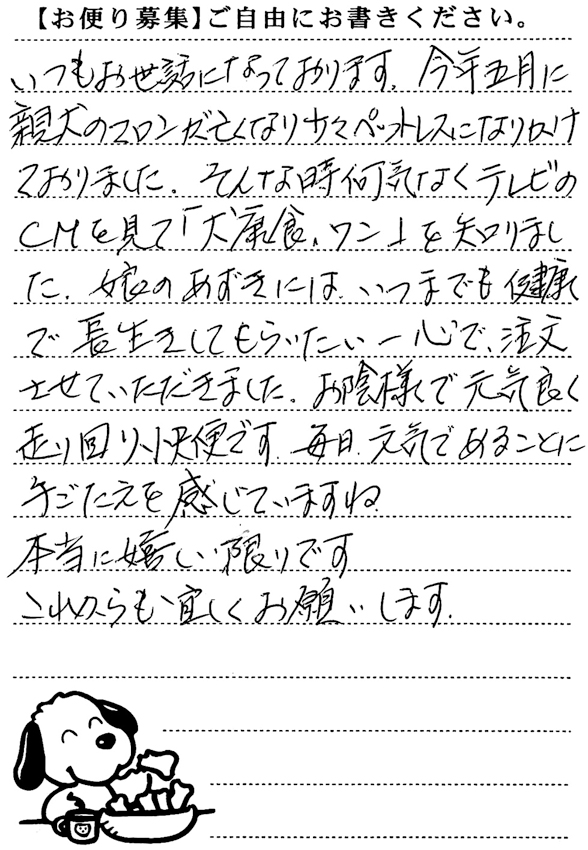 【お便り募集】ご自由にお書きください。
いつもお世話になっております。今年五月に
親犬のマロンが亡くなり少々ペットロスになりかけ
ておりました。そんな時何気なくテレビの
CMを見て「犬康食、ワン」を知りまし
た。娘のあずきには、いつまでも健康
で長生きしてもらいたい一心で、注文
させていただきました。お陰様で元気良く
走り回り、快便です。毎日、元気であることに
手ごたえを感じていますね
本当に嬉しい限りです
これからも宜しくお願いします。